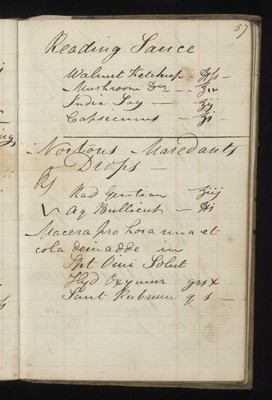 57
Reading Sauce
Walnut Ketchup - ℔ss -
Mushroom Do - - ℥iv
India Soy - ℥ij
Capsicums - ℥i
Nortons Maredants
Drops -
℞
Rad Gentian ℥iij
Aq Bullient - ℔i
Macera pro hora una et
cola dein adde in
Spt Vini Solut
Hyd Oxymur grs x
Sant Rubrum q s -